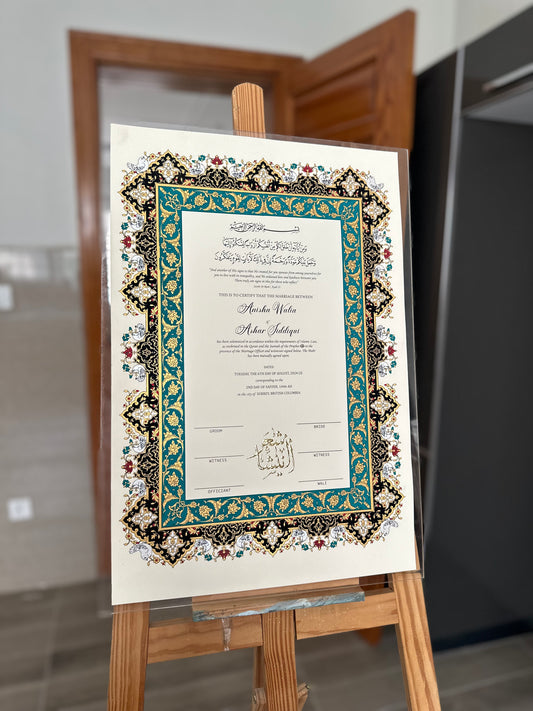 بسم الله الرحمن الرحيم
"And another of His signs is that He created for you spouses from among yourselves for
you to live with in tranquility, and He ordained love and kindness between you.
There truly are signs in this for those who reflect"
THIS IS TO CERTIFY THAT THE MARRIAGE BETWEEN
Anisha Walia
&
Ashar Siddiqui
has been solemnized in accordance within the requirements of Islamic Law,
as enshrined in the Quran and the Sunnah of the Prophet ﷺ in the
presence of the Marriage Officer and witnesses signed below. The Mahr
has been mutually agreed upon.
DATED
TUESDAY, THE 6TH DAY OF AUGUST, 2024 CE
corresponding to the
2ND DAY OF SAFAR, 1446 AH
in the city of SURREY, BRITISH COLUMBIA
GROOM
BRIDE
WITNESS
WITNESS
OFFICIANT
WALI